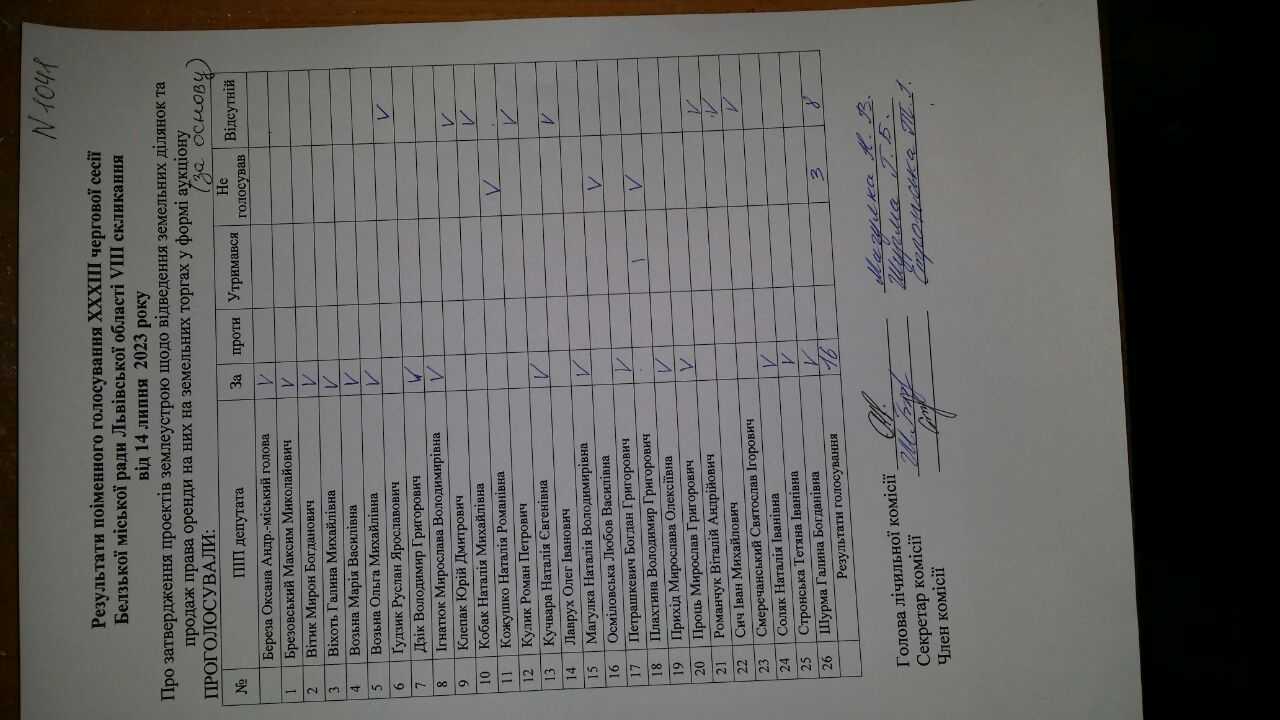 N 1041
Результати поіменного голосування ХХХІІІ чергової сесії
Белзької міської ради Львівської області VІІІ скликання
від 14 липня 2023 року
Про затвердження проектів землеустрою щодо відведення земельних ділянок та
продаж права оренди на них на земельних торгах у формі аукціону
(за основу)
ПРОГОЛОСУВАЛИ:
№ ПІП депутата За проти Утримався Не голосував Відсутній
Береза Оксана Андр.-міський голова V
1 Брезовський Максим Миколайович V
2 Вітик Мирон Богданович V
3 Віхоть Галина Михайлівна V
4 Возьна Марія Василівна V
5 Возьна Ольга Михайлівна V
6 Гудзик Руслан Ярославович V
7 Дзік Володимир Григорович V
8 Ігнатюк Мирослава Володимирівна V
9 Клепак Юрій Дмитрович V
10 Кобак Наталія Михайлівна V
11 Кожушко Наталія Романівна V
12 Кулик Роман Петрович V
13 Кучвара Наталія Євгенівна V
14 Лаврух Олег Іванович V
15 Магулка Наталія Володимирівна V
16 Осміловська Любов Василівна V
17 Петрашкевич Богдан Григорович V
18 Плахтина Володимир Григорович V
19 Прихід Мирослава Олексіївна V
20 Проць Мирослав Григорович V
21 Романчук Віталій Андрійович V
22 Сич Іван Михайлович V
23 Смеречанський Святослав Ігорович V
24 Соляк Наталія Іванівна V
25 Стронська Тетяна Іванівна V
26 Шурма Галина Богданівна V
Результати голосування 16 3 8
Голова лічильної комісії Магулка Н. В.
Секретар комісії Шурма Г. Б.
Член комісії Стронська Т. І.